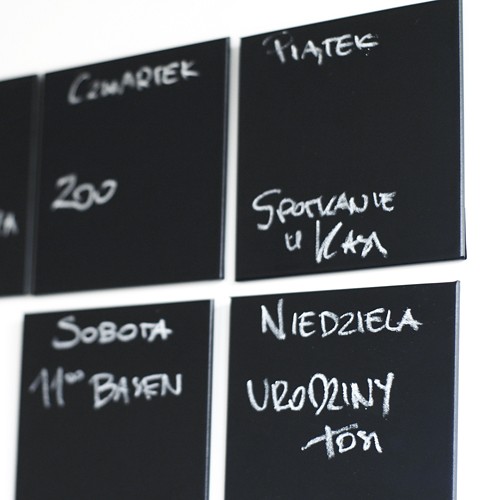 CZWARTEK
ZOO
PIĄTEK
SPOTKANIE
U KASI
SOBOTA
11⁰⁰ BASEN
NIEDZIELA
URODZINY
TOSI